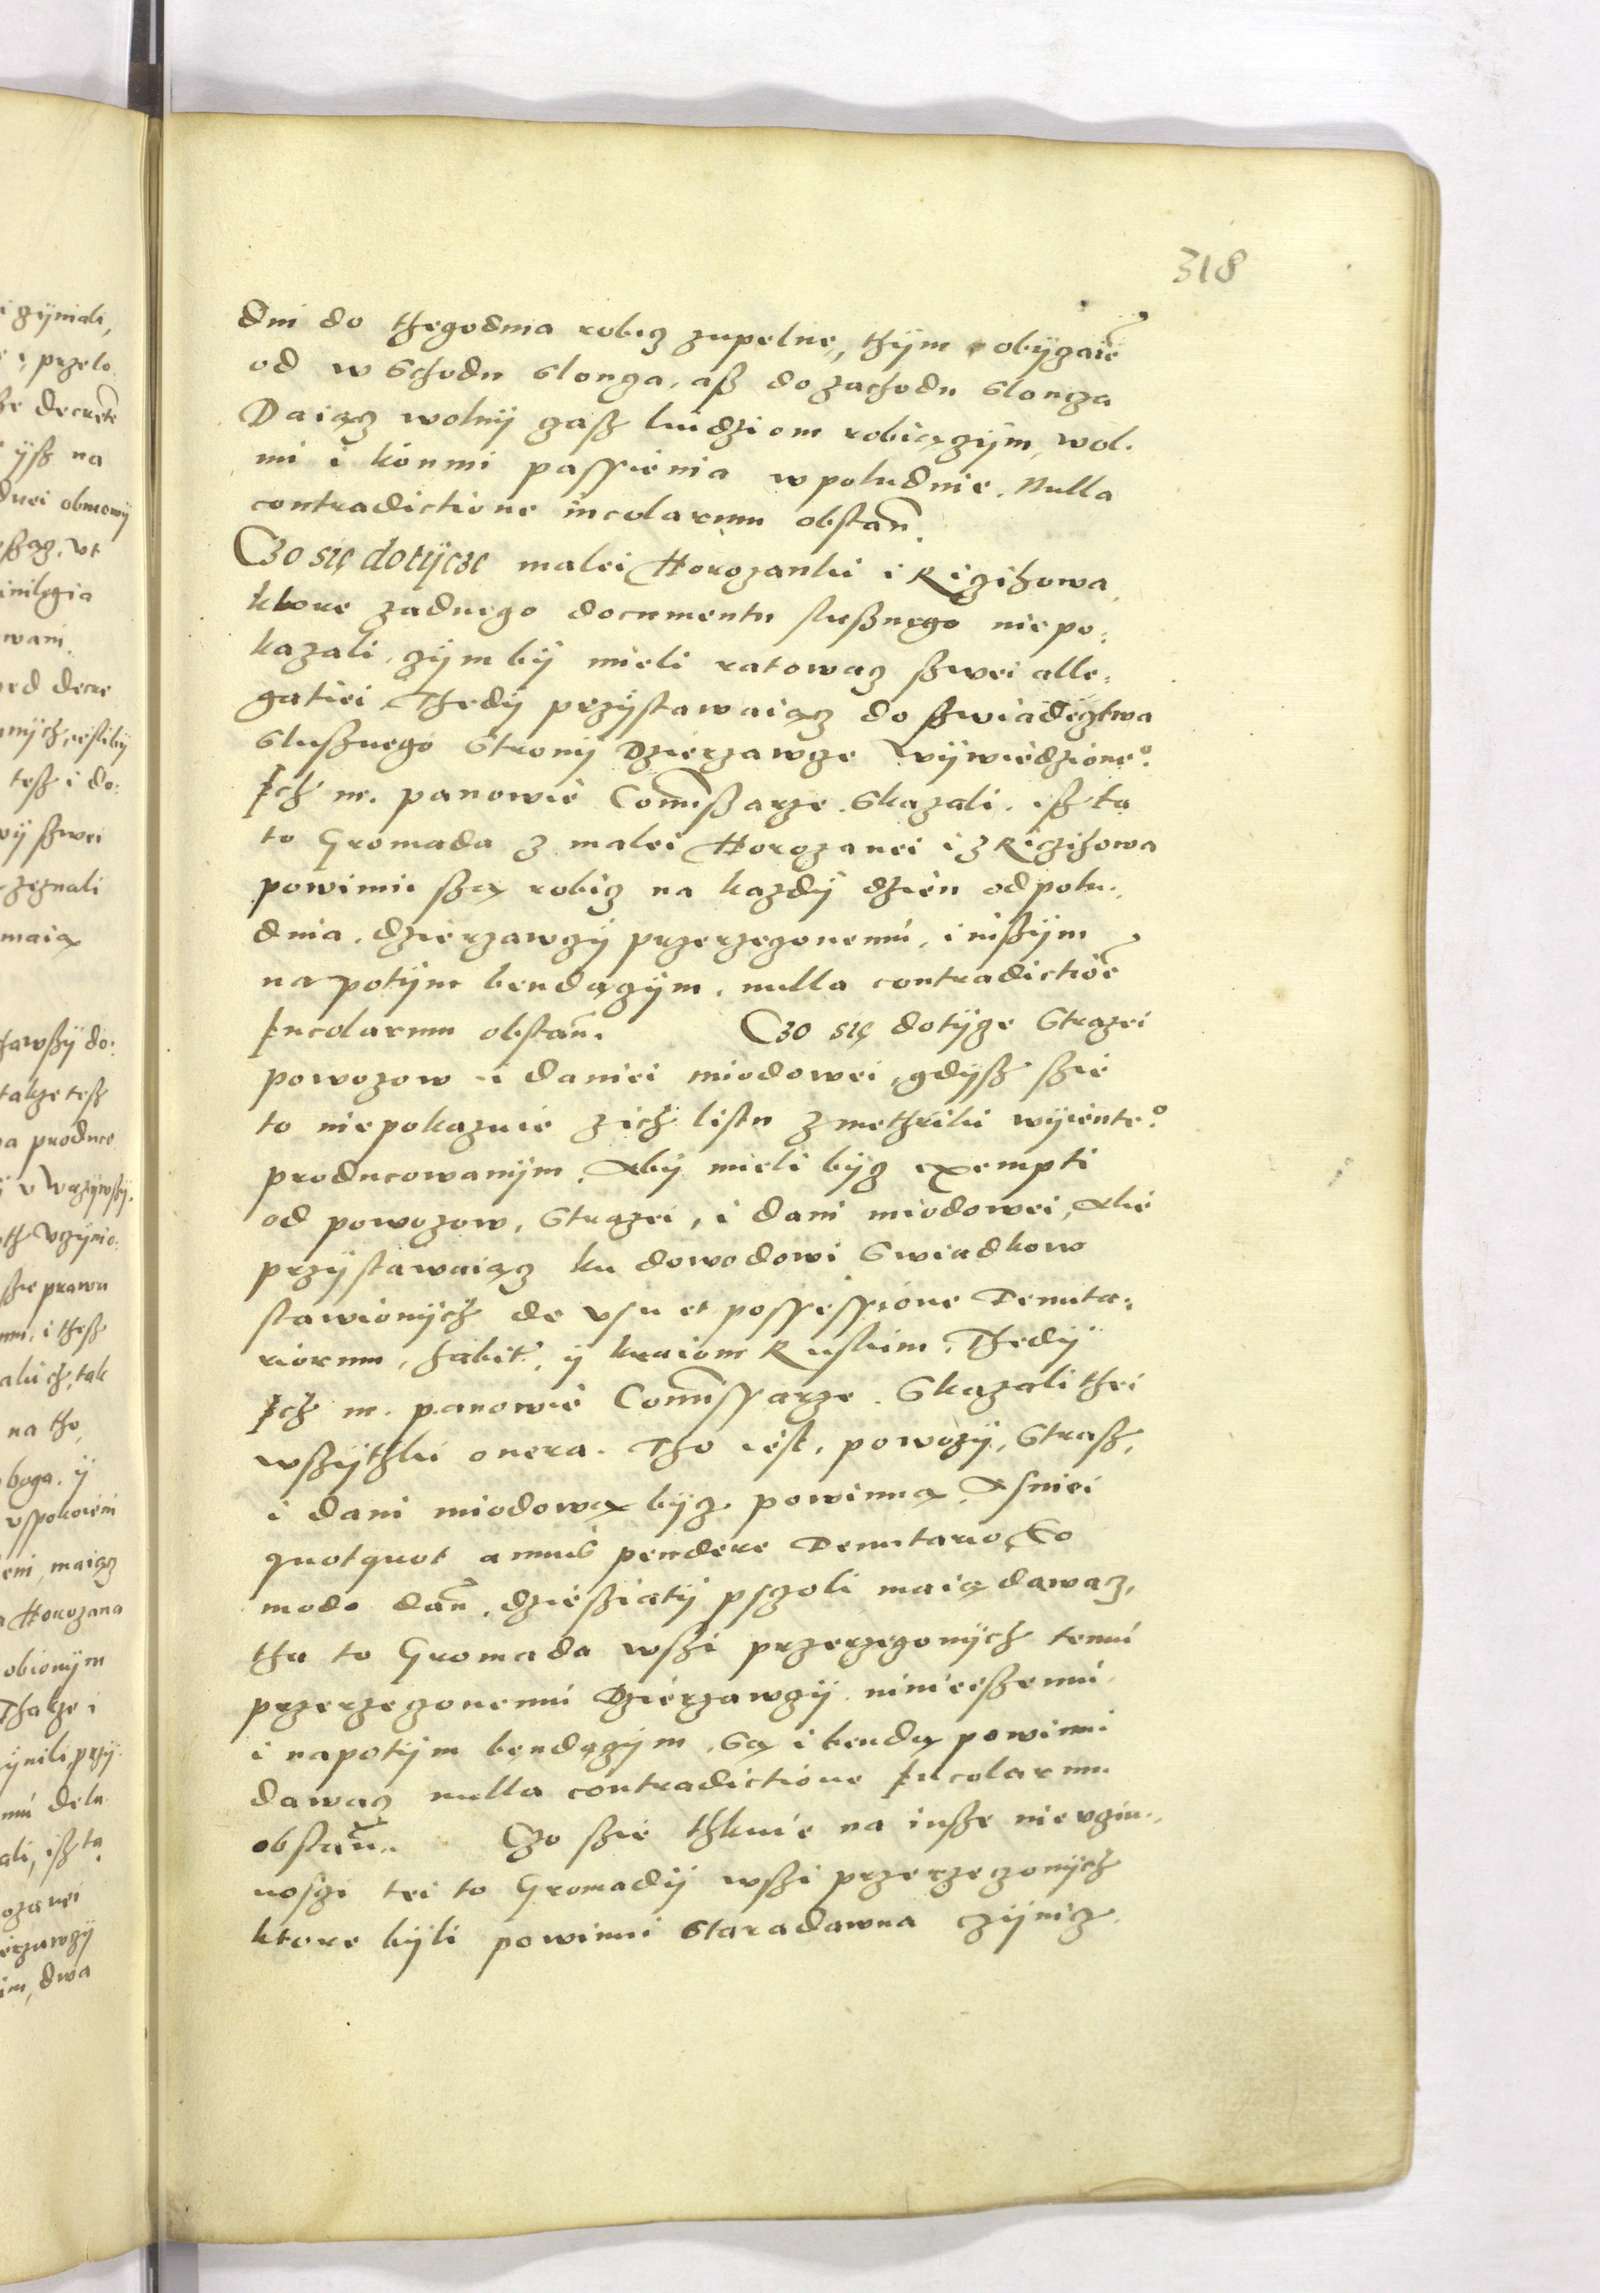 318
dni do thegodnia robicz zupelne, thÿm obÿczaie͂
od wschodu slonca, asz do zachodu sloncza
Daiącz wolnÿ czasz liudziom robiączÿm, wol-
mi i konmi passienia wpoludnie. Nulla
contradictione incolarum obstan͂.
Czo się dotÿcze malei Horozanki i Riczihowa
ktore zadnego documentu slusznego niepo:
kazali, czÿmbÿ mieli ratowacz szwei alle:
gatiei Thedÿ przÿstawaiącz do szwiadecztwa
slusznego stronÿ Dzierzawcze wÿwiedzione:º
Ich m. panowie Com͂iszarze skazali, isz ta
to Gromada z malei Horozanei i z Riczihowa
powinni szą robicz na kazdÿ dzien odpolu:
dnia, dzierzawczÿ przerzeczonemu, i inszÿm
napotÿm bendączÿm, nulla contradictio͂e
Incolarum obstan͂. Czo się dotÿcze strazei
powozow i daniei miodowei, gdÿsz szie
to niepokazuie z ich listu z methriki wÿiente:º
producowanÿm, Abÿ mieli bÿcz exempti
od powozow, strazei, i dani miodowei, Ale
przÿstawaiącz ku dowodowi swiadkow
stawionÿch de vsu et possessione Tenuta:
riorum, habit. ÿ kraiom Ruskim. Thedÿ
Ich m. panowie Com͂issarze skazali thei
wszÿthki onera. Tho iest, powozÿ, strasz,
i dani miodową bÿcz powinną, A sniei
quotquot annis pendere Tenutario, Eo
modo dan͂, dziesziątÿ pszoli maią dawacz,
tha to Gromada wszi przerzeczonÿch temu
przerzeczonemu Dzierzawczÿ ninieeszemu,
i napotÿm bendączÿm, są i bendą powinni
dawacz nulla contradictione Incolarum
obstan͂. Czo szie thknie na insze nievczin-
noszi tei to Gromadÿ wszi przerzeczonÿch
ktore bÿli powinni staradawna czÿnicz